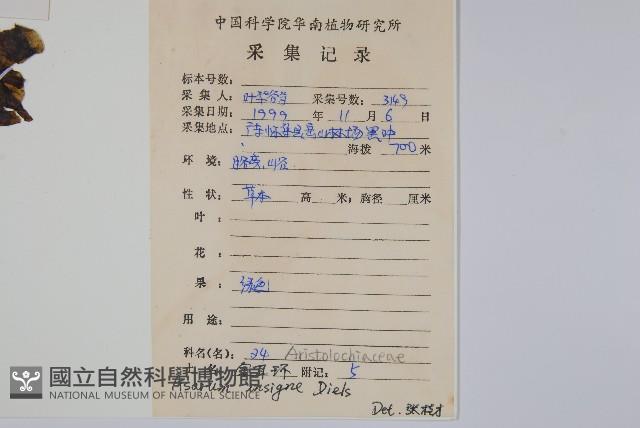 中国科学院华南植物研究所
采集记录
标本号数:
采集人: 叶华谷 采集号数: 3149
采集日期: 1999 年 11 月 6 日
采集地点: 怀集县 山林场
海拨 700 米
环境: 山谷
性状: 草本 高 米; 胸径 厘米
叶:
花:
果: 绿色
用途:
科名(名): 24 Aristolochiaceae
土名: 附记: 5
Asarum insigne Diels
Det. 张桂才
國立自然科學博物館
NATIONAL MUSEUM OF NATURAL SCIENCE